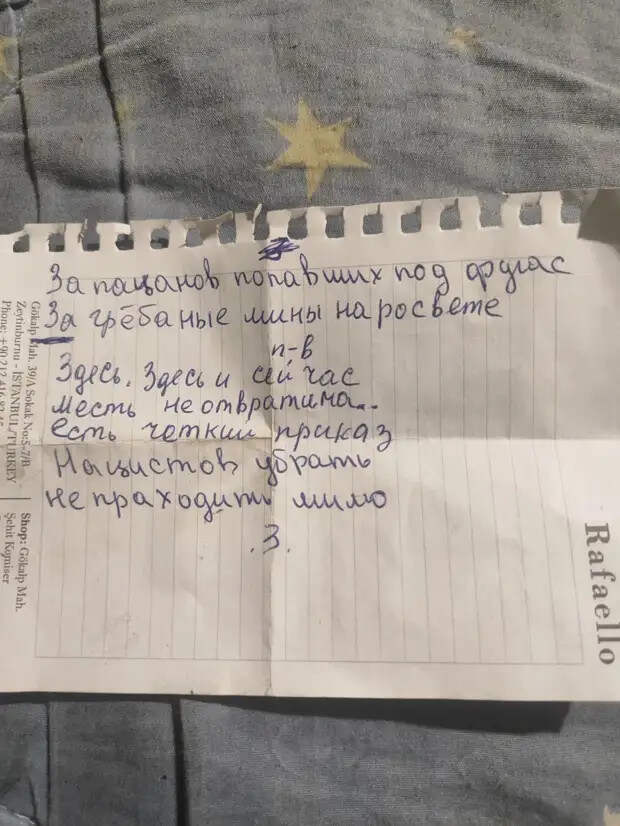 За пацанов попавших под фугас
За грёбаные мины на росвете
п-в
Здесь. Здесь и сейчас
месть не отвратима..
есть чёткий приказ
Нацистов убрать
не праходить мимо
.З.
Gökalp Mah. 39/A Sokak No:5-7/B
Zeytinburnu - İSTANBUL/TURKEY
Phone: +90 212 416
Shop: Gökalp Mah.
Şehit Komiser
Rafaello